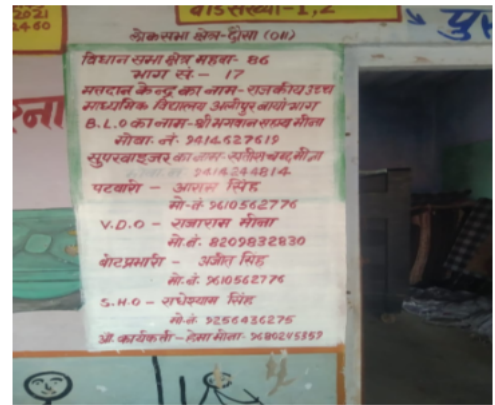 2021
2460
वार्ड संख्या-1,2
लोकसभा क्षेत्र-दौसा (011)
विधान सभा क्षेत्र महवा- 86
भाग सं.- 17
मतदान केन्द्र का नाम-राजकीय उच्च
माध्यमिक विद्यालय अलीपुर बायां भाग
B.L.O का नाम-श्री भगवान सहाय मीना
मोबा. नं. 9414627619
सुपरवाइजर का नाम- सतीश चन्द मीना
9414244814
पटवारी - सिंह
मो.नं. 9610562776
V.D.O - राजाराम मीना
मो.नं. 8209832830
बीट प्रभारी - अजीत सिंह
मो.नं. 9610562776
S.H.O - राधेश्याम सिंह
मो.नं. 9256436275
आं. कार्यकर्ता - हेमा मीना- 9680245359